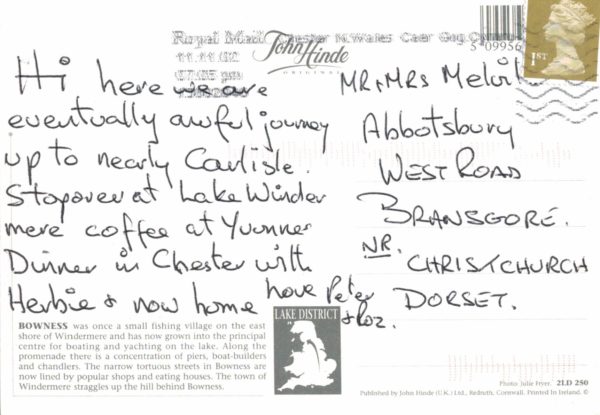 Royal Mail Chester N.Wales Caer Gog.Cymru
11.11.02
07:03 pm
John Hinde
ORIGINAL
5 09956
1ST
Hi here we are
eventually awful journey
up to nearly Carlisle.
Stopover at Lake Winder
mere coffee at Yvonnes
Dinner in Chester with
Herbie & now home love Peter
& Roz.
MR & MRS
Abbotsbury
WEST ROAD
BRANSGORE.
NR.
CHRISTCHURCH
DORSET.
LAKE DISTRICT
BOWNESS was once a small fishing village on the east
shore of Windermere and has now grown into the principal
centre for boating and yachting on the lake. Along the
promenade there is a concentration of piers, boat-builders
and chandlers. The narrow tortuous streets in Bowness are
now lined by popular shops and eating houses. The town of
Windermere straggles up the hill behind Bowness.
Photo: Julie Fryer. 2LD 250
Published by John Hinde (U.K.) Ltd., Redruth, Cornwall. Printed in Ireland. ©